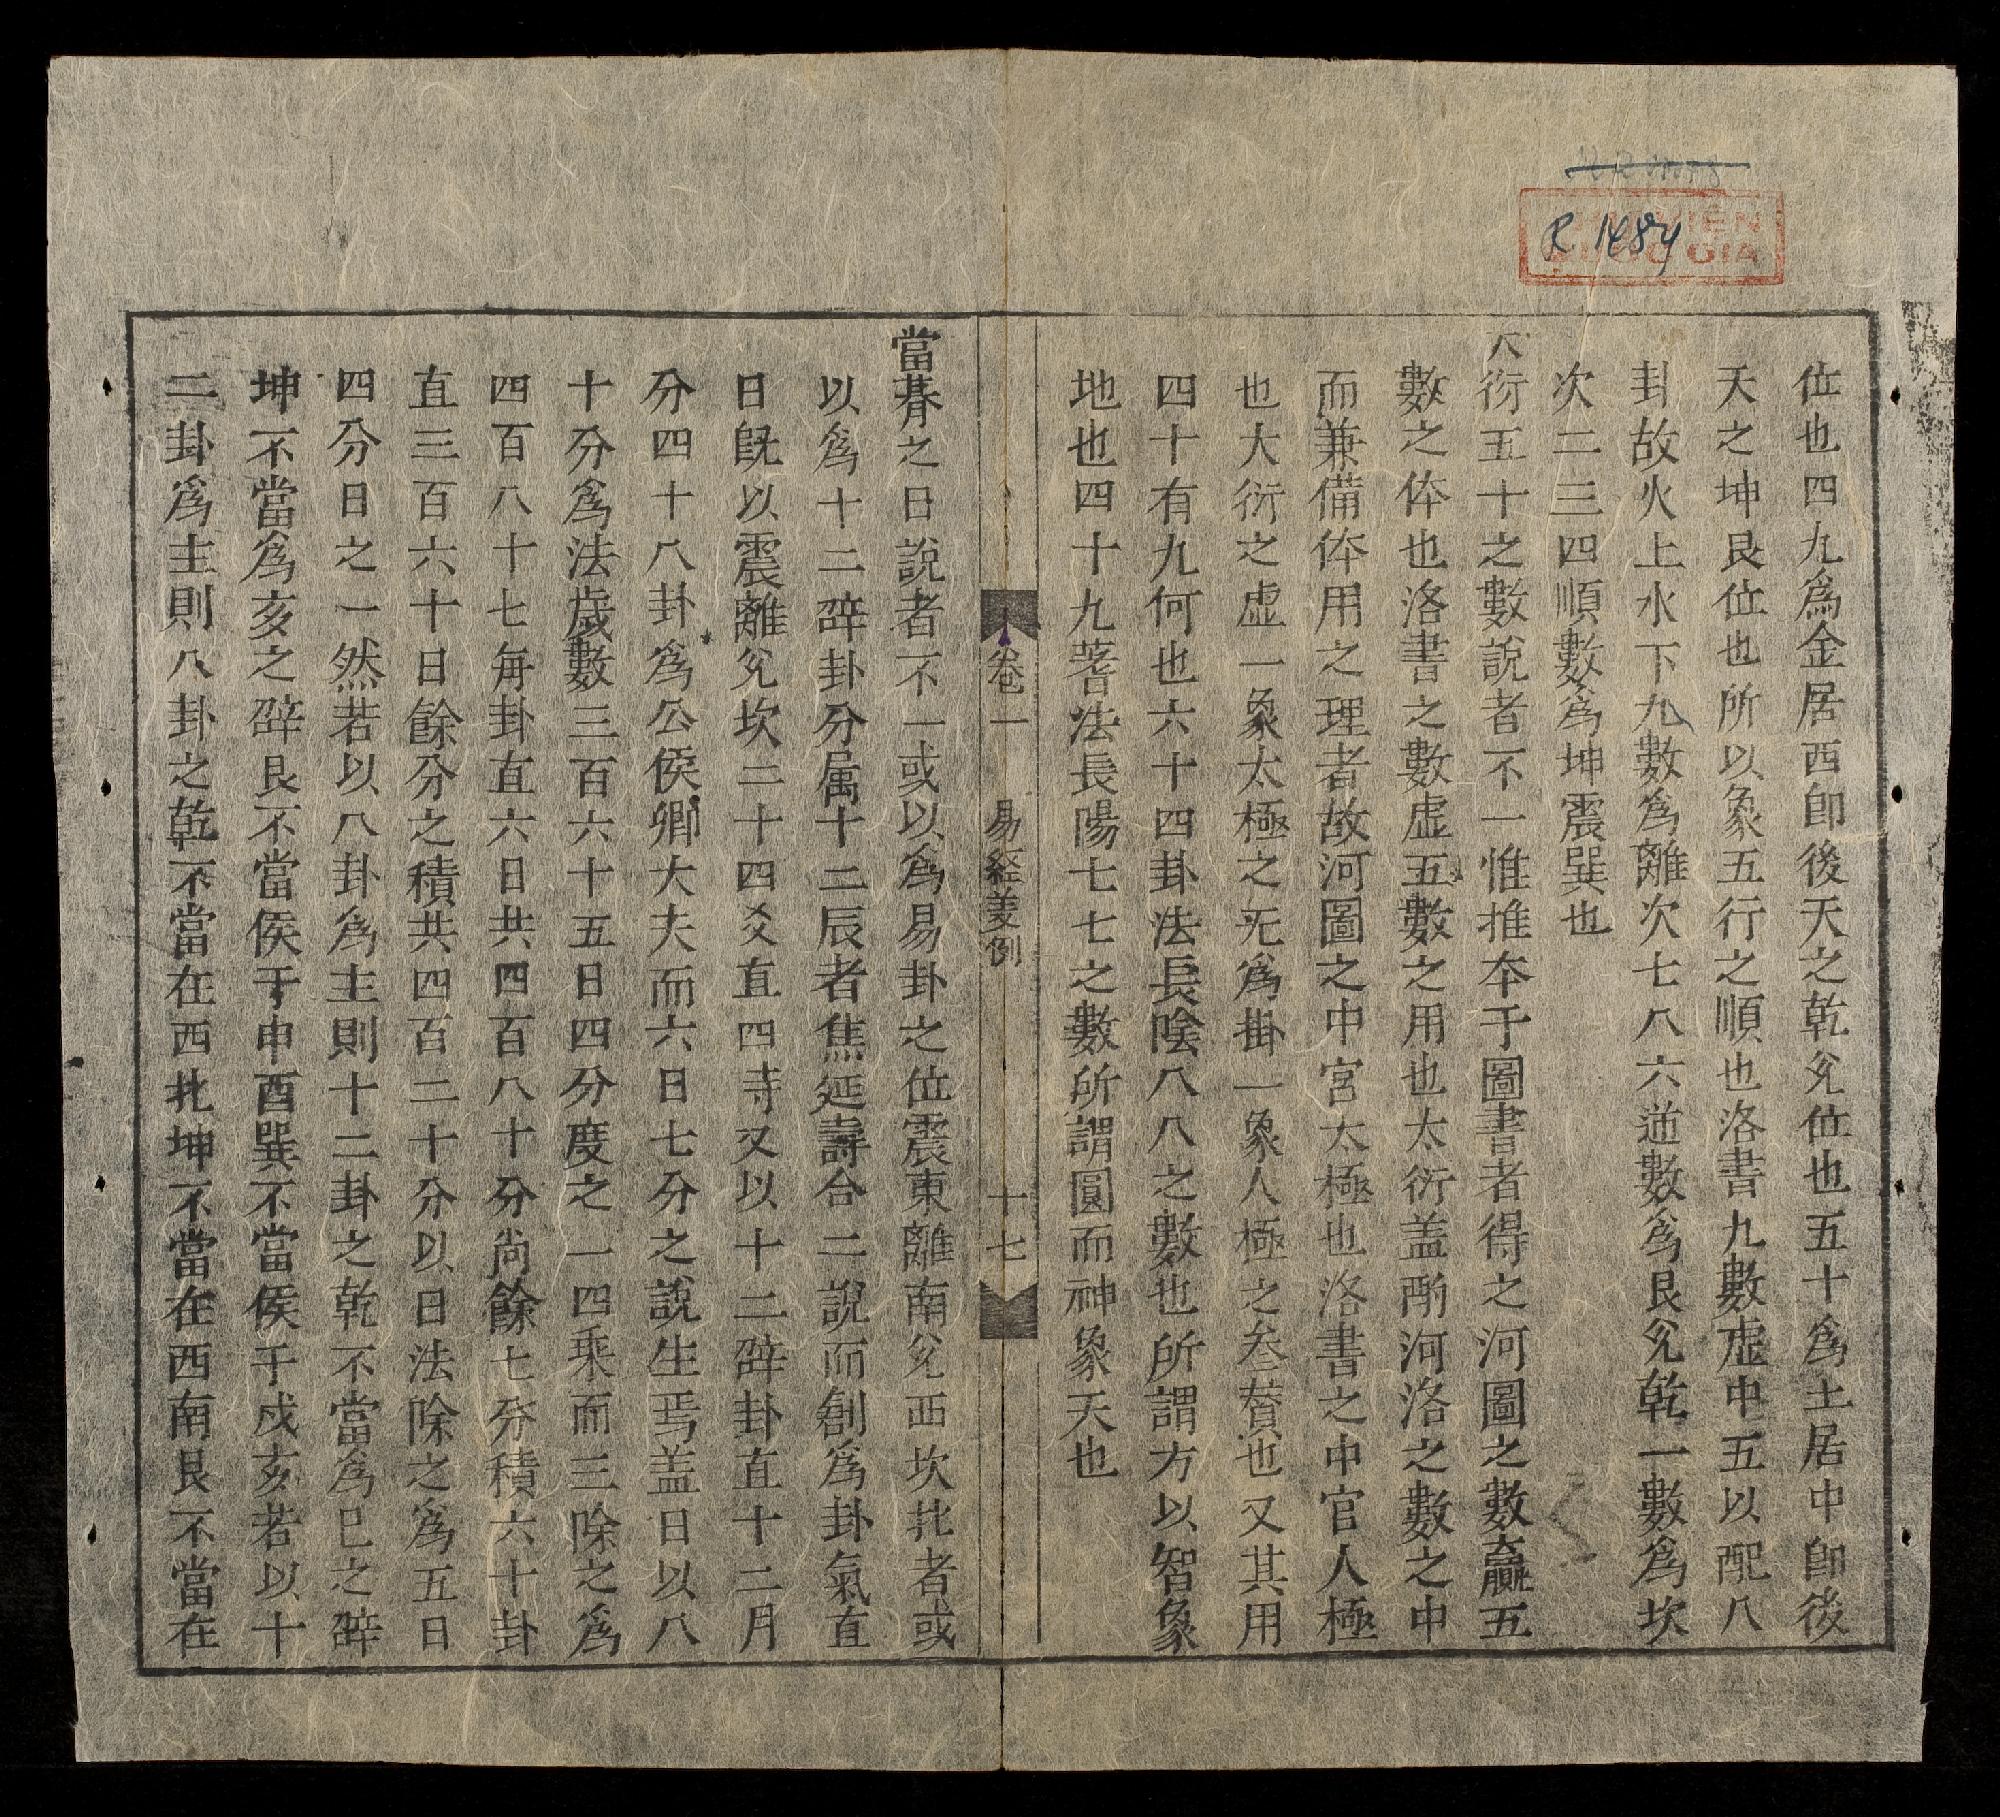 R 1484
VIỆN
GIA
位也四九爲金居西卽後天之乾兊位也五十爲土居中卽後
天之坤艮位也所以象五行之順也洛書九數虛中五以配八
卦故火上水下九數爲離次七八六逆數爲艮兊乾一數爲坎
次二三四順數爲坤震巽也
大衍五十之數說者不一惟推夲于圖書者得之河圖之數贏五
數之体也洛書之數虛五數之用也大衍盖酌河洛之數之中
而兼備体用之理者故河圖之中宮太極也洛書之中宮人極
也大衍之虛一象太極之无爲掛一象人極之叅賛也又其用
四十有九何也六十四卦法長陰八八之數也所謂方以智象
地也四十九蓍法長陽七七之數所謂圓而神象天也
卷一 易經義例 十七
當朞之日說者不一或以爲易卦之位震東離南兊西坎北者或
以爲十二辟卦分属十二辰者焦延壽合二說而創爲卦氣直
日旣以震離兊坎二十四爻直四寺又以十二辟卦直十二月
分四十八卦爲公侯卿大夫而六日七分之說生焉盖日以八
十分爲法歲數三百六十五日四分度之一四乘而三除之爲
四百八十七每卦直六日共四百八十分尚餘七分積六十卦
直三百六十日餘分之積共四百二十分以日法除之爲五日
四分日之一然若以八卦爲主則十二卦之乾不當爲巳之辟
坤不當爲亥之辟艮不當侯于申酉巽不當侯于戌亥若以十
二卦爲主則八卦之乾不當在西北坤不當在西南艮不當在